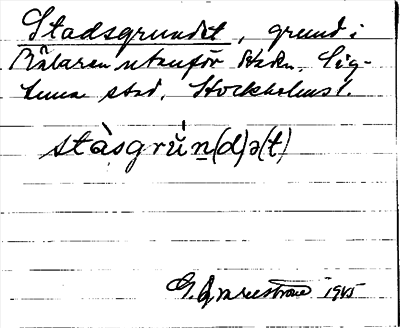 Stadsgrundet, grund i
Mälaren utanför Stadn, Sig-
tuna stad, Stockholms l.
stàsgrǘn(d)ə(t)
G. 1915